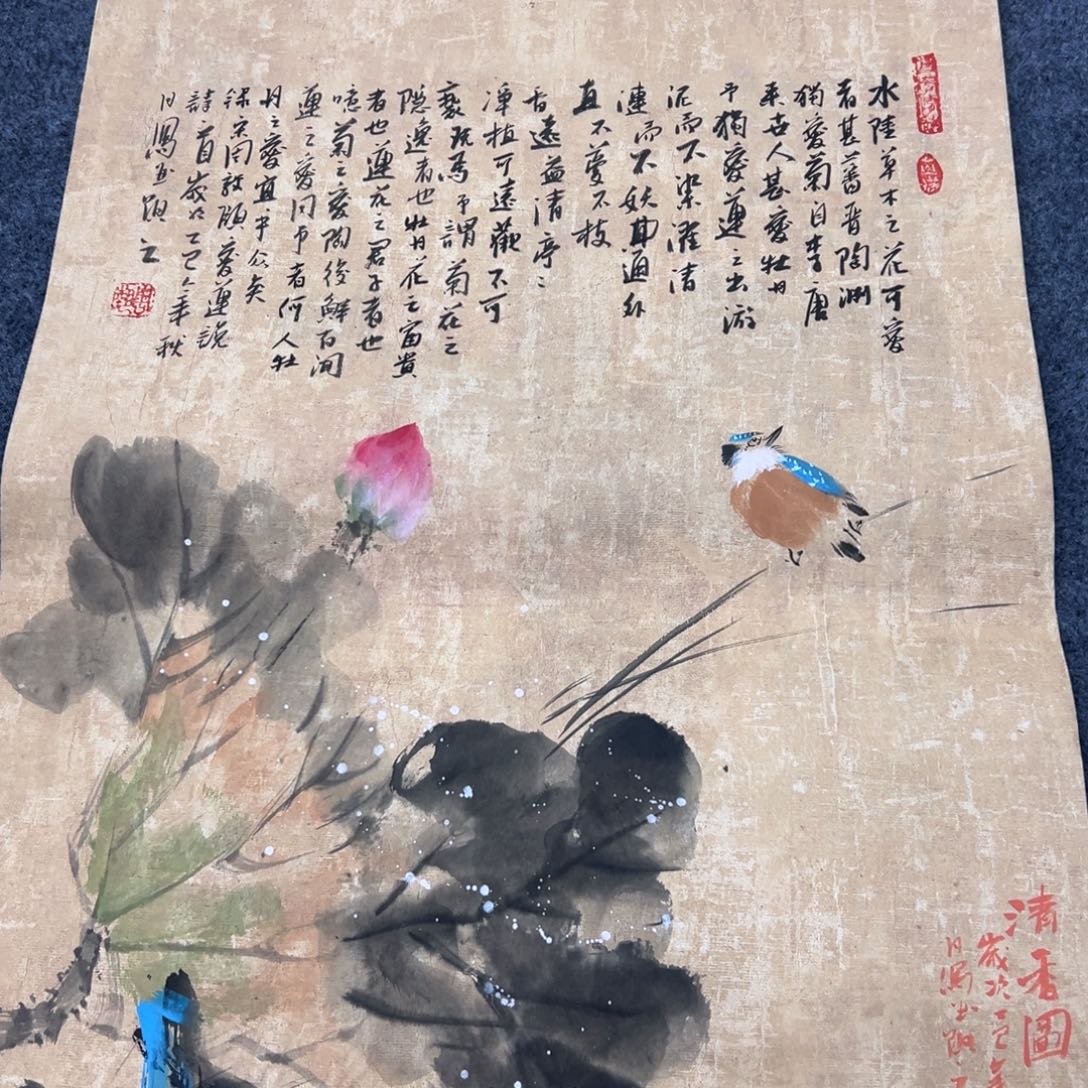 水陸草木之花可愛
者甚蕃晋陶渊
獨愛菊自李唐
来世人甚愛牡丹
予獨愛蓮之出淤
泥而不染濯清
漣而不妖中通外
直不蔓不枝
香遠益清亭〻
淨植可遠觀不可
褻玩焉予謂菊花之
隐逸者也牡丹花之富貴
者也蓮花之君子者也
噫菊之愛陶後鮮有闻
蓮之愛同予者何人牡
丹之愛宜乎众矣
録宋周敦頤愛蓮説
詩一首歲次乙巳年秋
月
之
清香圖
歲次乙巳年
月